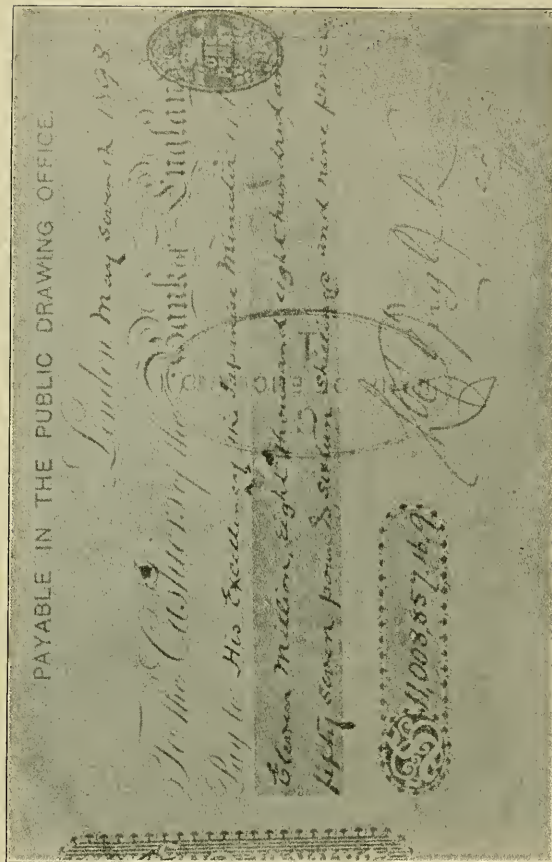 PAYABLE IN THE PUBLIC DRAWING OFFICE.
London May Seventh 1898
To the Cashiers of the Bank of England
Pay to His Excellency the Japanese Minister
Eleven Million, Eight thousand eight hundred and
fifty seven pounds sixteen shillings and nine pence
£11,008,857.16.9